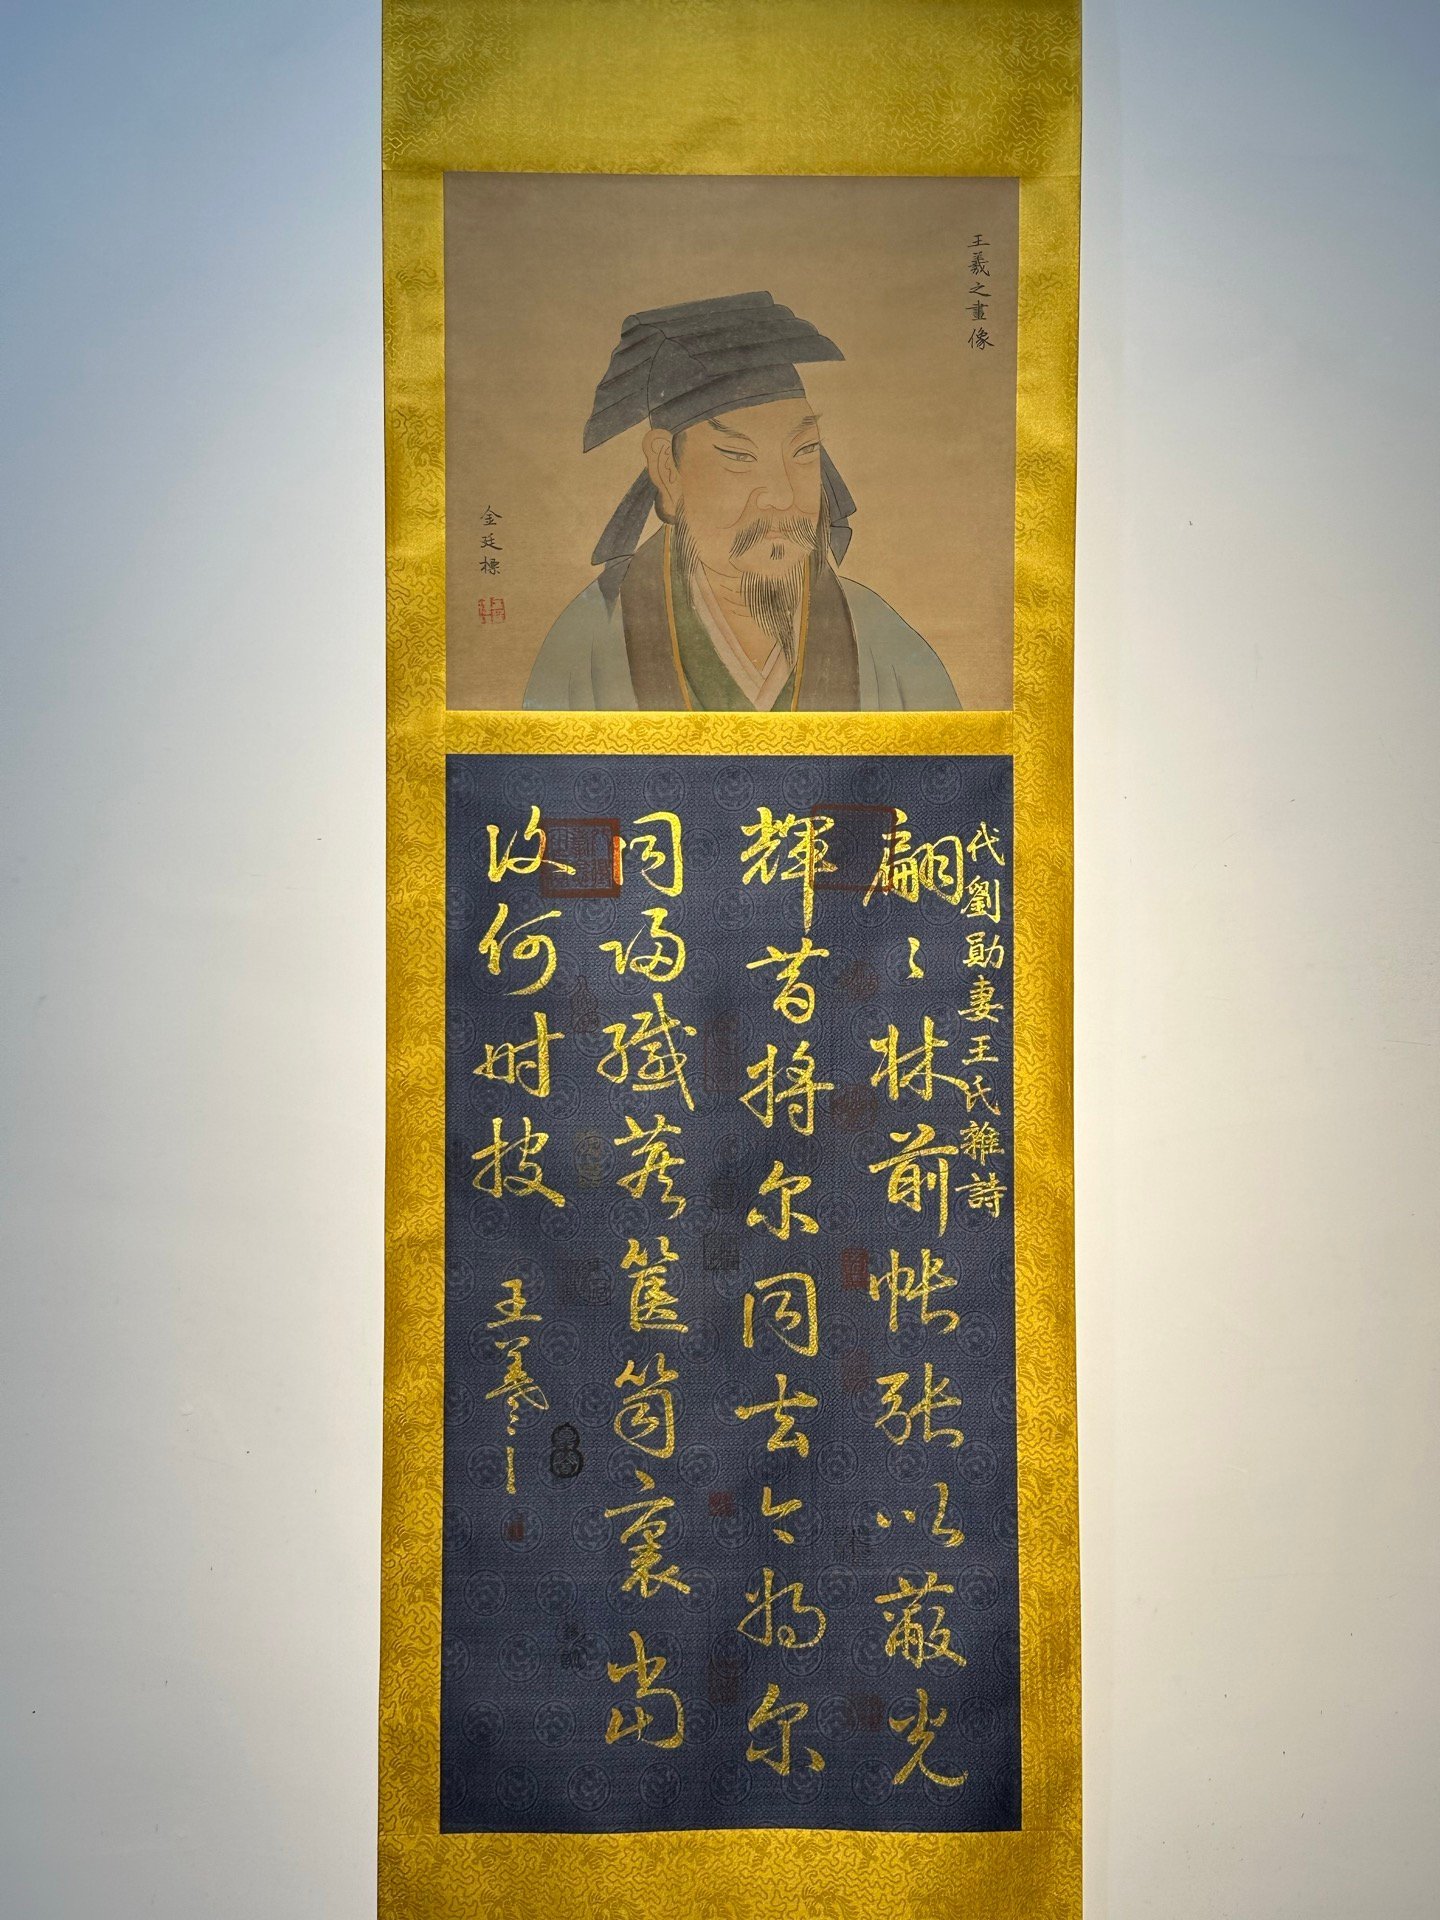 王羲之畫像
金廷標
代劉勛妻王氏雜詩
翩〻牀前帳张以蔽光
輝昔將尔同去今将尔
同歸緘藏篋笥裏當
復何时披
王羲之